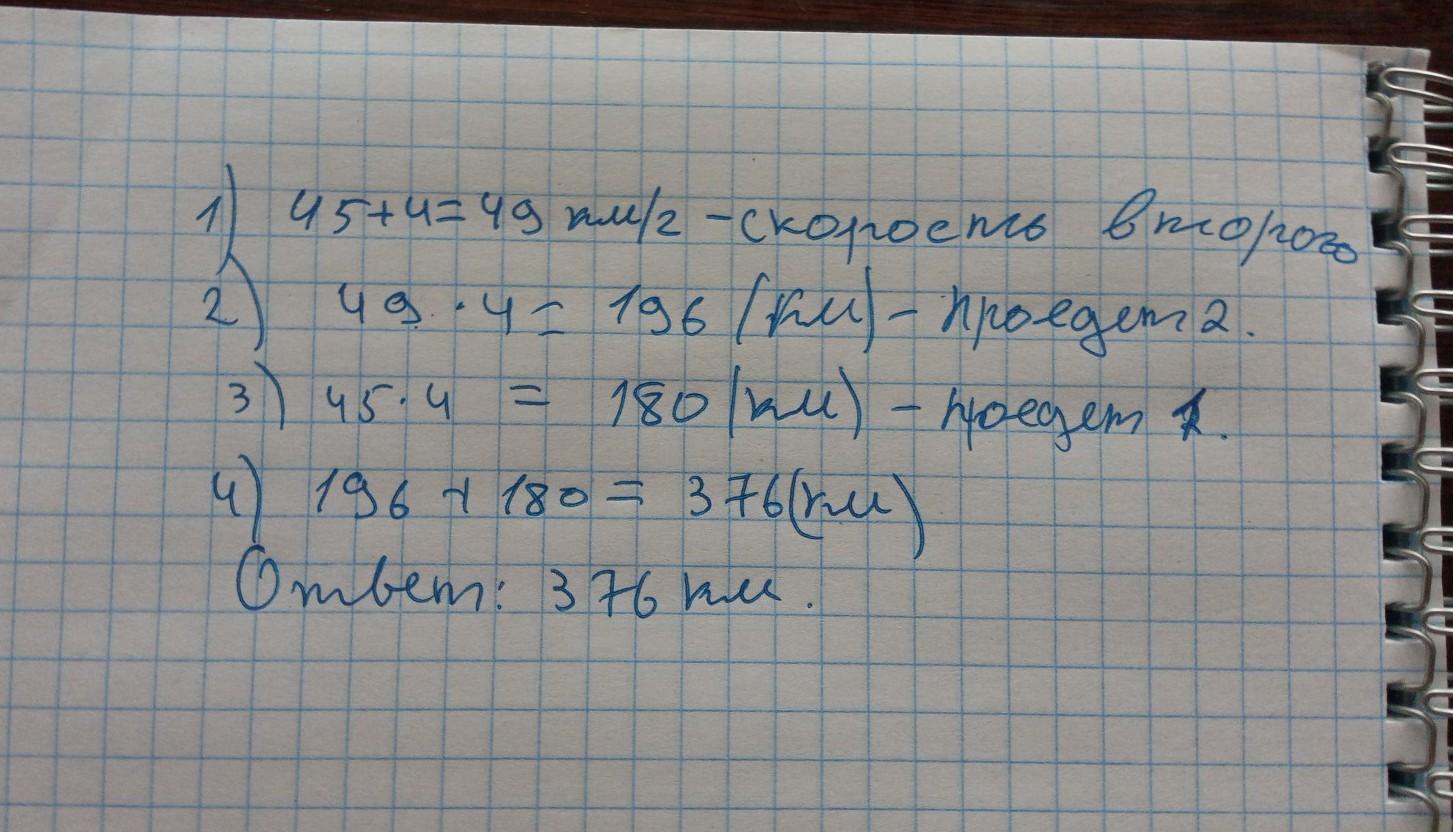 1) 45+4=49 км/г - скорость второго
2) 49 · 4 = 196 (км) - проедет 2.
3) 45 · 4 = 180 (км) - проедет 1.
4) 196 + 180 = 376 (км)
Ответ: 376 км.